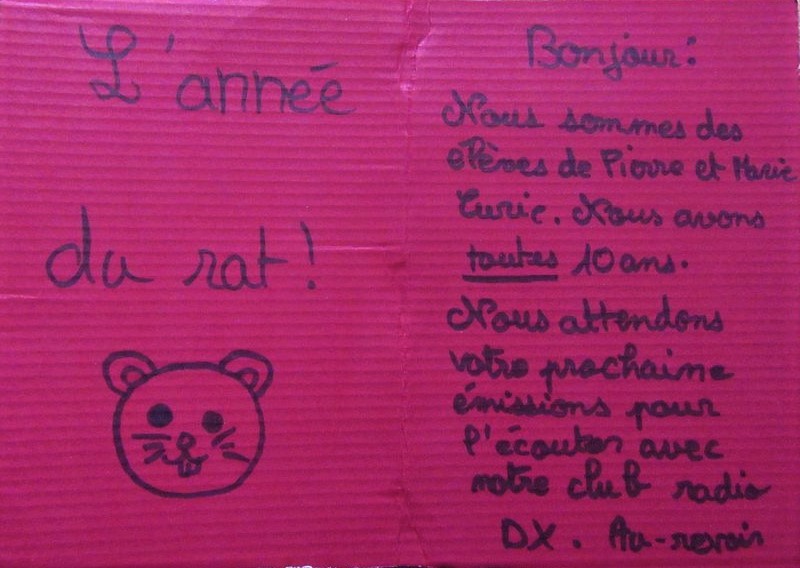 L'année
du rat!
Bonjour:
Nous sommes des
élèves de Pierre et Marie
Curie. Nous avons
toutes 10 ans.
Nous attendons
votre prochaine
émissions pour
l'écouter avec
notre club radio
DX. Au-revoir